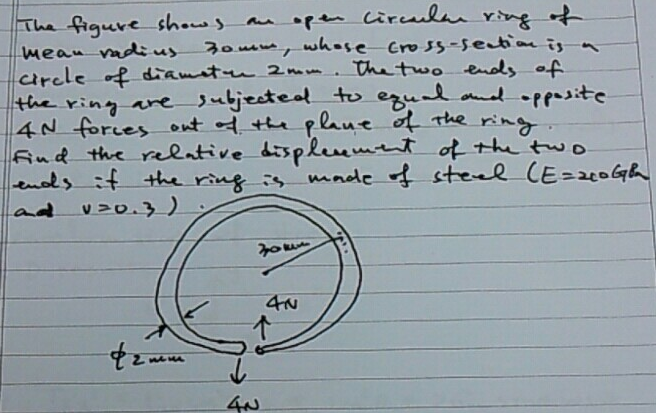 The figure shows an open circular ring of
mean radius 30mm, whose cross-section is a
circle of diameter 2mm. The two ends of
the ring are subjected to equal and opposite
4N forces out of the plane of the ring.
Find the relative displacement of the two
ends if the ring is made of steel (E=200GPa
and ν=0.3).
30mm
4N
ϕ2mm
4N